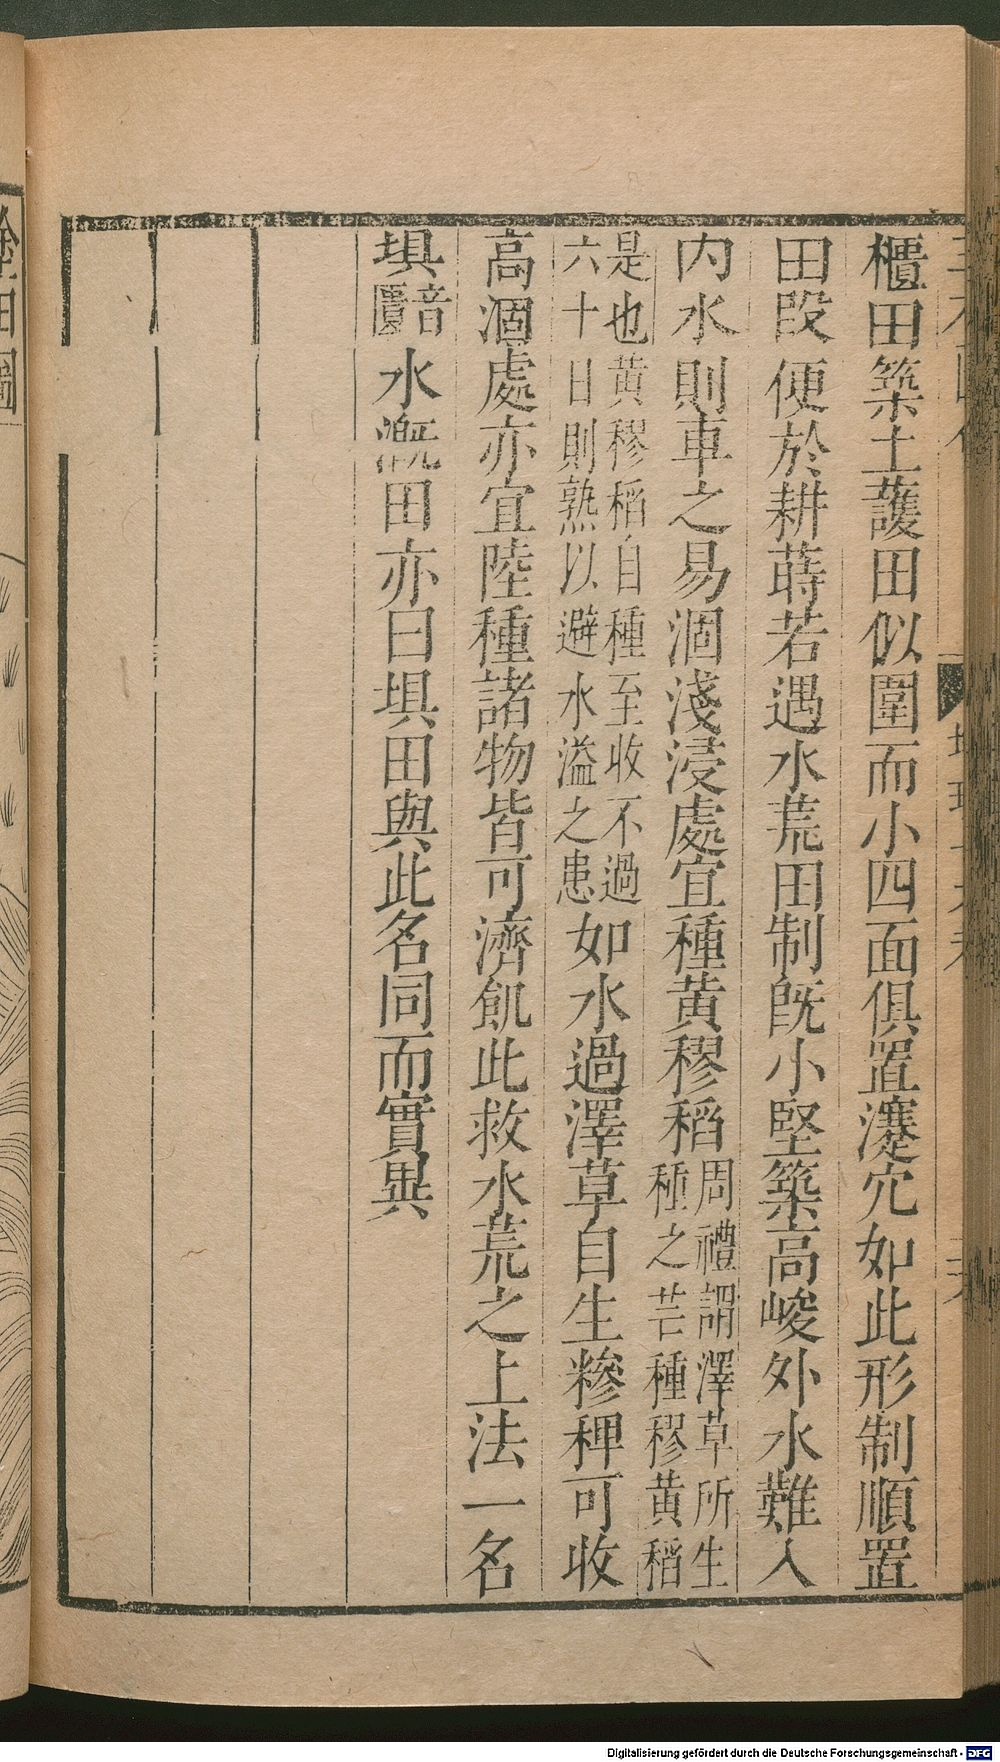 櫃田築土護田似圍而小四面俱置瀽穴如此形制順置
田段便於耕蒔若遇水荒田制旣小堅築高峻外水難入
內水則車之易涸淺浸處宜種黄穋稻周禮謂澤草所生種之芒種穋黄稻
是也黄穋稻自種至收不過六十日則熟以避水溢之患如水過澤草自生糝稗可收
高涸處亦宜陸種諸物皆可濟飢此救水荒之上法一名
埧音匱水漑田亦曰埧田與此名同而實異
Digitalisierung gefördert durch die Deutsche Forschungsgemeinschaft - DFG